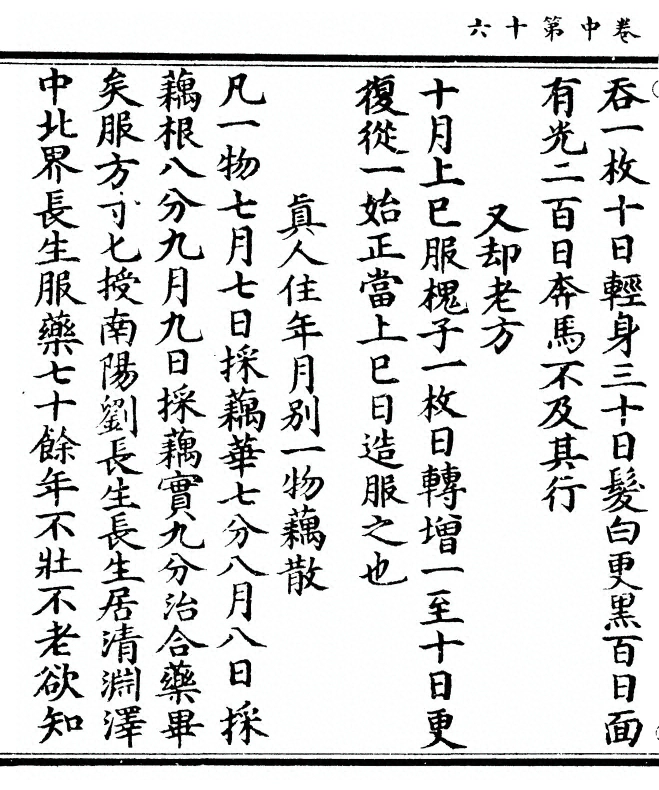 卷中第十六
吞一枚十日輕身三十日髮白更黑百日面
有光二百日奔馬不及其行
又却老方
十月上巳服槐子一枚日轉增一至十日更
復從一始正當上巳日造服之也
眞人住年月別一物藕散
凡一物七月七日採藕華七分八月八日採
藕根八分九月九日採藕實九分治合藥畢
矣服方寸匕授南陽劉長生長生居清淵澤
中北界長生服藥七十餘年不壯不老欲知